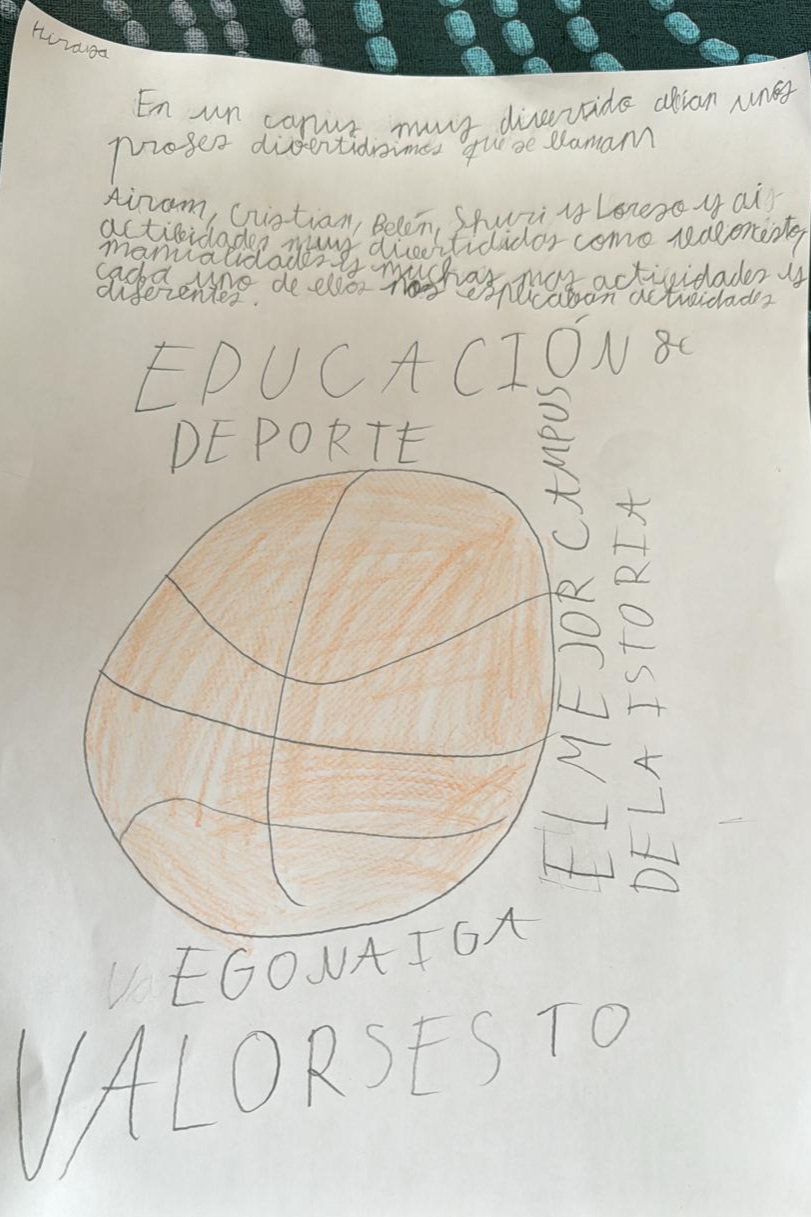 Hiraya
En un canus muy divertido abían unos
profes divertidisimos que se llamam
Airam, Cristian, Belén, Shuri y Loreso y ai
actibidades muy divertididas como valonsesto,
manialidades y muchas mas actividades y
cada uno de ellos nos esplicaban actividades
diferentes.
EDUCACIÓN &
DEPORTE
EL MEJOR CAMPUS
DE LA ISTORIA
EGONAIGA
VALORSESTO